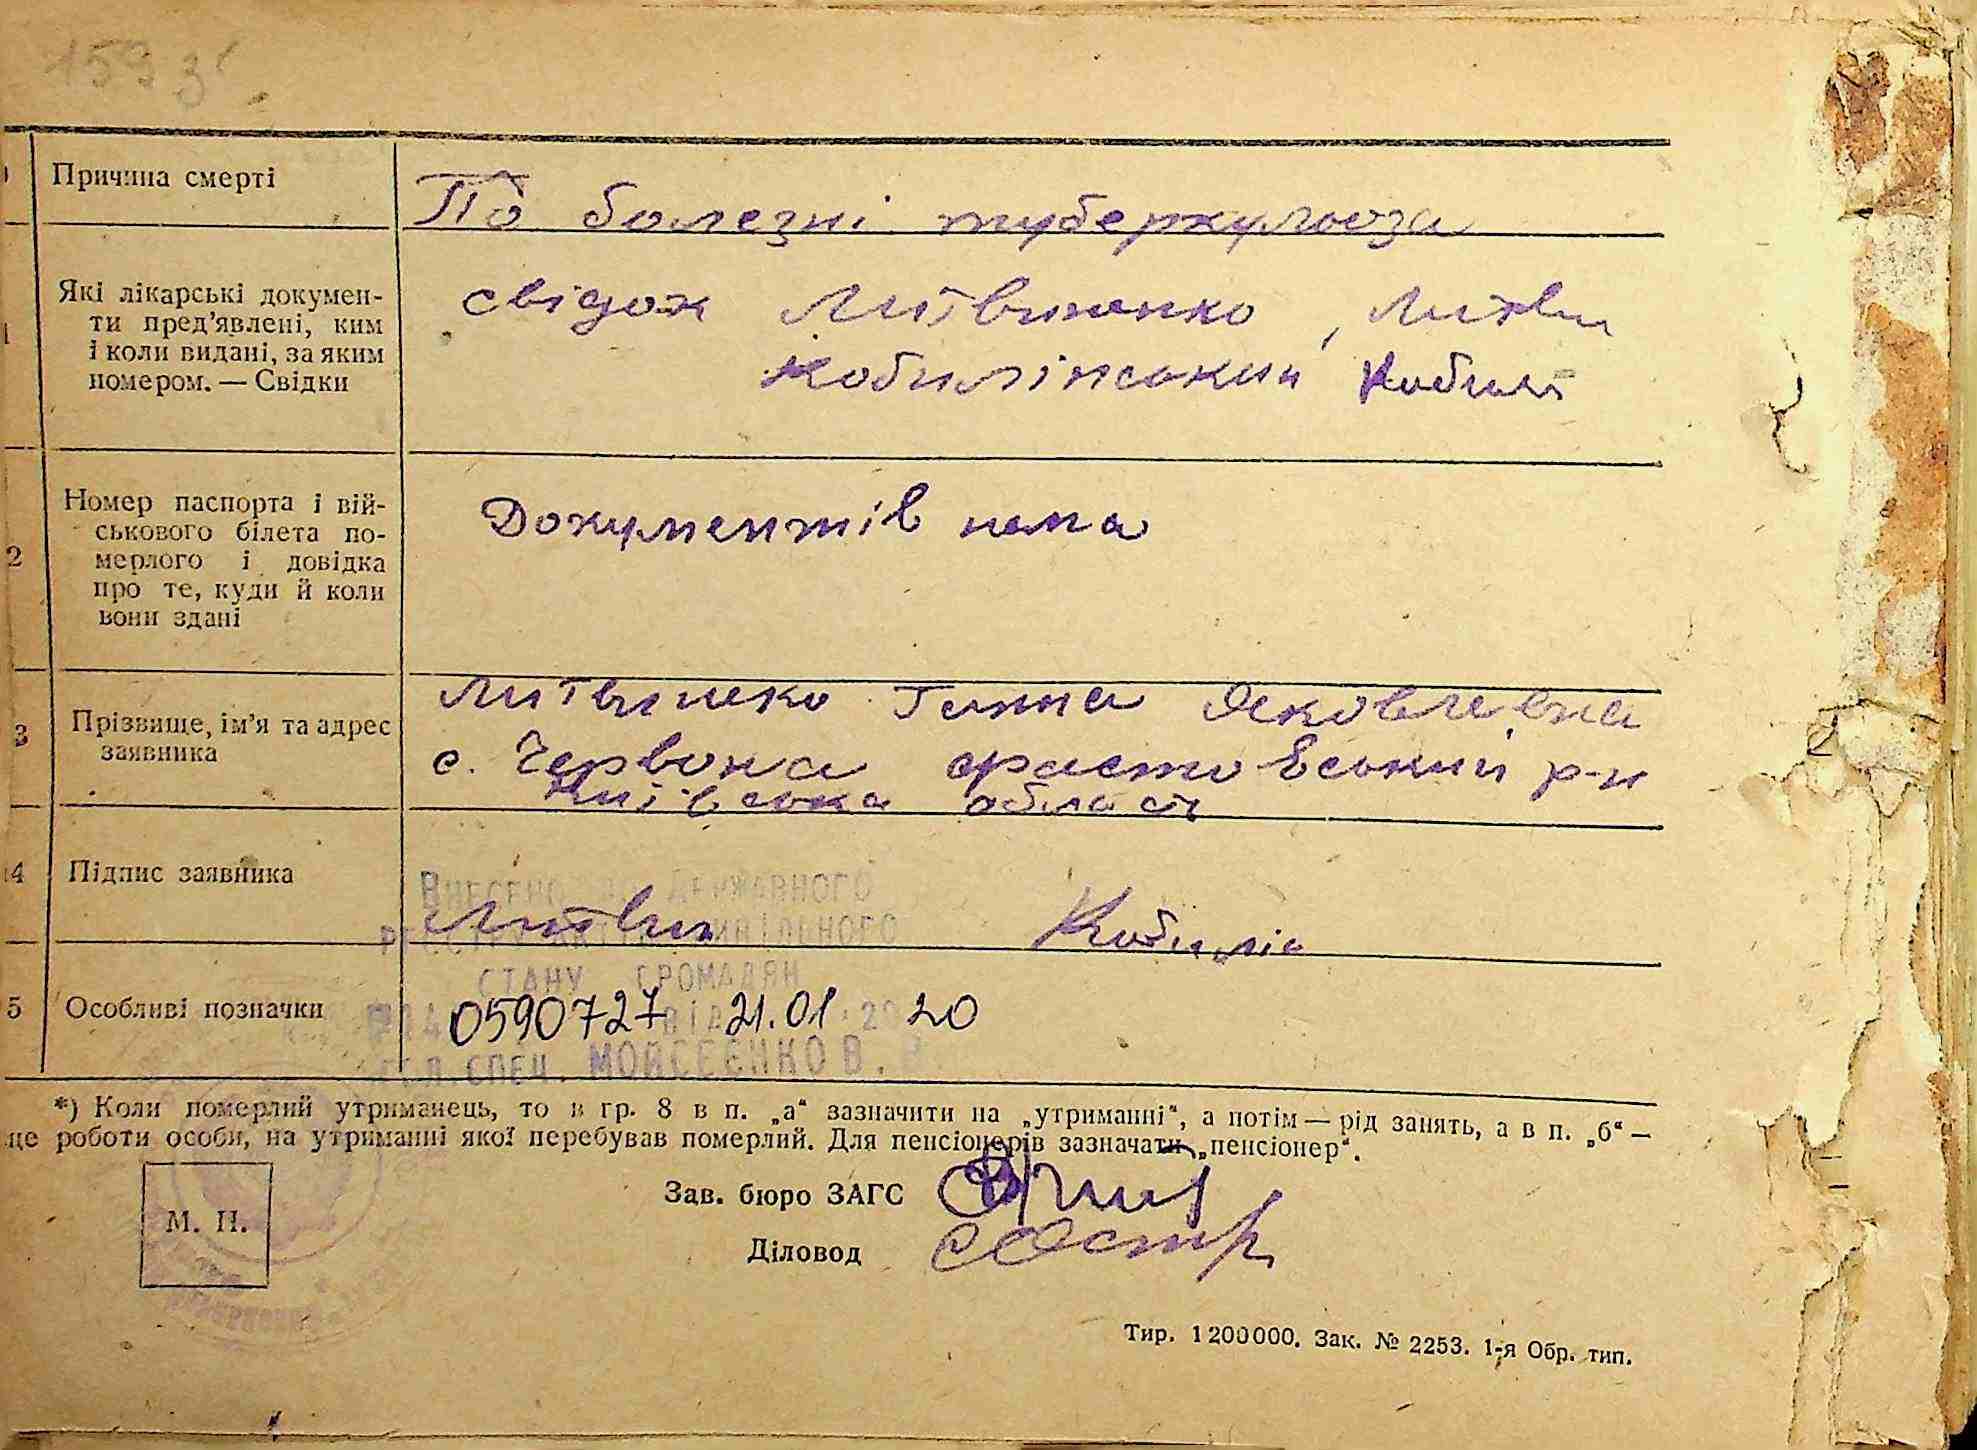 159 з
Причина смерті
По болезні туберкульоза
Які лікарські докумен-
ти пред'явлені, ким
і коли видані, за яким
номером. — Свідки
свідок Литвиненко, Литвин
Кобилінський Кобилі
2
Номер паспорта і вій-
ськового білета по-
мерлого і довідка
про те, куди й коли
вони здані
Документів нема
3
Прізвище, ім'я та адрес
заявника
Литвинеко Ганна Яковлевна
с. Червона Фастовський р-н
Київська область
14
Підпис заявника
Литвин Кобилін
5
Особливі позначки
Внесено до Державного
реєстру актів цивільного
стану громадян
0590727 від 21.01.2020
гол. спец. Мойсеєнко В.
*) Коли померлий утриманець, то в гр. 8 в п. „а“ зазначити на „утриманні“, а потім — рід занять, а в п. „б“ —
це роботи особи, на утриманні якої перебував померлий. Для пенсіонерів зазначати „пенсіонер“.
Зав. бюро ЗАГС
М. П.
Діловод
Тир. 1200000. Зак. № 2253. 1-я Обр. тип.